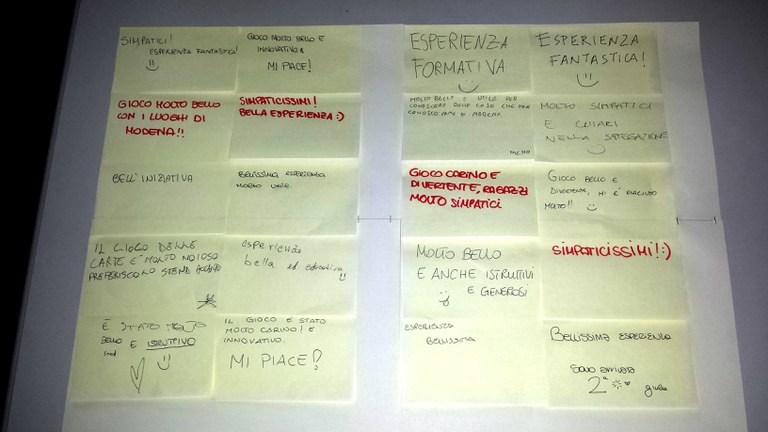 SIMPATICI!
ESPERIENZA FANTASTICA!
GIOCO MOLTO BELLO E
INNOVATIVO
MI PIACE!
GIOCO MOLTO BELLO
CON I LUOGHI DI
MODENA!!
SIMPATICISSIMI!
BELLA ESPERIENZA:)
BELL'INIZIATIVA
BELLISSIMA ESPERIENZA
MOLTO UTILE.
IL GIOCO DELLE
CARTE E' MOLTO NOIOSO
PREFERISCO LO STEND
esperienza
bella ed educativa
È STATO MOLTO
BELLO E ISTRUTTIVO
IL GIOCO E STATO
MOLTO CARINO! E
INNOVATIVO.
MI PIACE!
ESPERIENZA
FORMATIVA
ESPERIENZA
FANTASTICA!
MOLTO BELLO E UTILE PER
CONOSCERE DELLE COSE CHE NON
CONOSCEVAMO DI MODENA.
MOLTO SIMPATICI
E CHIARI
NELLA SPIEGAZIONE
GIOCO CARINO E
DIVERTENTE, RAGAZZI
MOLTO SIMPATICI
GIOCO BELLO E
DIVERTENTE, MI È PIACIUTO
MOLTO!!
MOLTO BELLO
E ANCHE ISTRUTTIVI
E GENEROSI
SIMPATICISSIMI!:)
ESPERIENZA
BELLISSIMA
BELLISSIMA ESPERIENZA
SONO ARRIVATA
2ª giulia